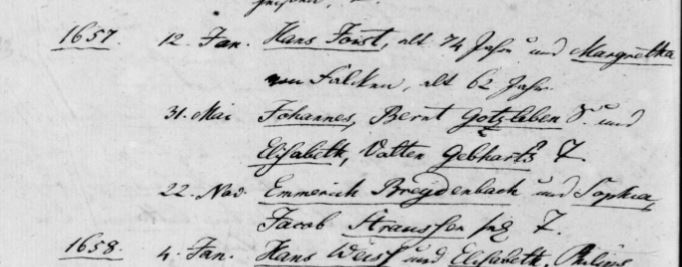 1657. 12. Jan. Hans Forst, alt 74 Jahr und Margretha
von Falcken, alt 62 Jahr.
31. Mai Johannes, Bernt Gotzleben S. und
Elisabeth, Valten Gebharts T.
22. Nov. Emmerich Breydenbach und Sophia,
Jacob Straussen T.
1658. 4. Jan. Hans Weis und Elisabeth, Philips